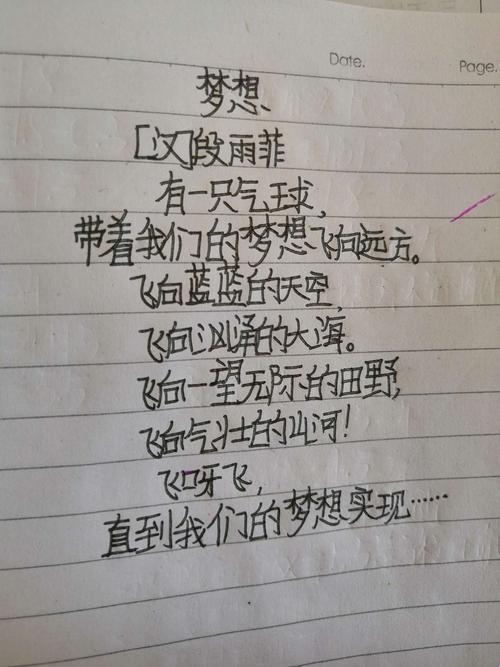 Date.
Page.
梦想
[汉]段雨菲
有一只气球,
带着我们的梦想飞向远方。
飞向蓝蓝的天空,
飞向汹涌的大海。
飞向一望无际的田野,
飞向气壮的山河!
飞呀飞,
直到我们的梦想实现……